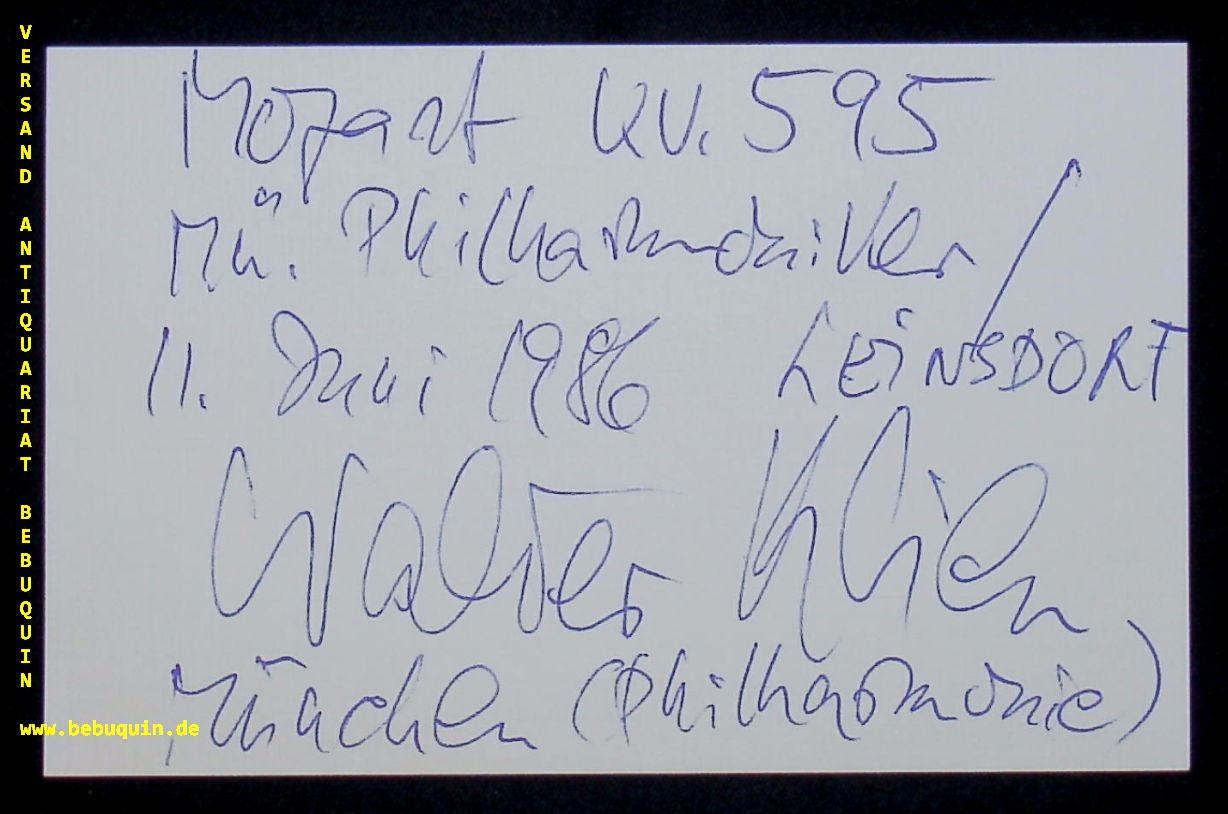 Mozart KV. 595
Mü. Philharmoniker /
11. Juni 1986 LEINSDORF
Walter Klien
München (Philharmonie)
VERSAND ANTIQUARIAT BEBUQUIN
www.bebuquin.de